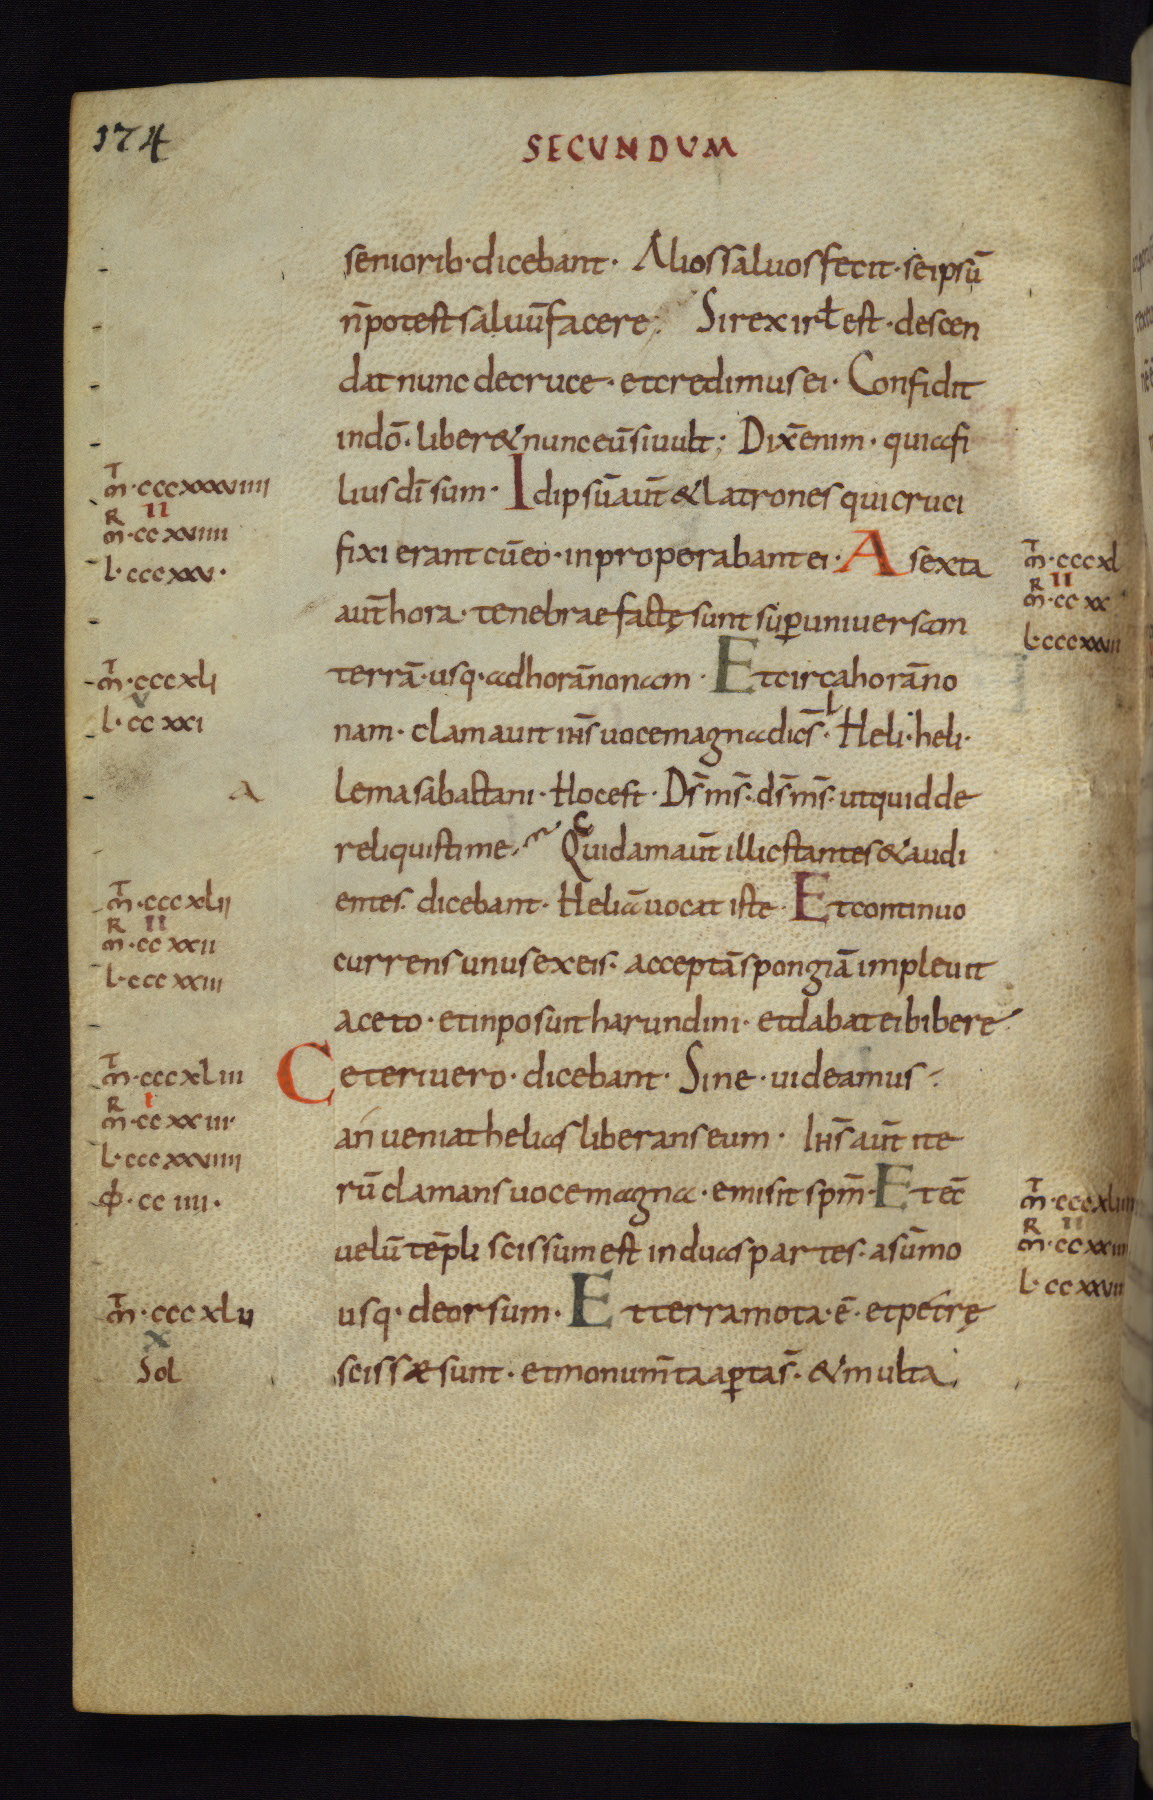 174
SECUNDUM
seniorib·dicebant· Alios saluos fecit· se ipsū
n̄ potest saluū facere; Si rex irł est· descen
dat nunc de cruce· et credimus ei· Confidit
in dō· liber& nunc eū si uult; Dix̄ enim· quia fi
lius dī sum· Id ipsū aut̄ & latrones qui cruci
fixi erant cū eo· inproperabant ei· A sexta
aut̄ hora· tenebrae factę sunt sup̄ uniuersam
terrā· usq· ad horā nonam· Et circa horā no
nam· clamauit ih̄s uoce magna dic̄s· Heli·heli·
lema sabactani· Hoc est· Ds̄ ms̄· ds̄ ms̄· ut quid de
reliquisti me· Quidam aut̄ illic stantes & audi
entes· dicebant· Heliā uocat iste· Et continuo
currens unus ex eis· acceptā spongiā impleuit
aceto· et inposuit harundini· et dabat ei bibere
Ceteri uero· dicebant· Sine· uideamus
an ueniat helias liberans eum· Ih̄s aut̄ ite
rū clamans uoce magna· emisit spm̄· Et ec̄
uelū tēpli scissum est in duas partes· a sūmo
usq· deorsum· Et terra mota· ē· et petrę
scissae sunt· et monum̄ta ap̄ta s̄· & multa
m̄·cccxxxviiii
R II
m̄·ccxviiii
L·cccxxv·
m̄·cccxli
V
L·ccxxi
A
m̄·cccxlii
R II
m̄·ccxxii
L·cccxxiii
m̄·cccxliii
R I
m̄·ccxxiii·
L·cccxxviiii
φ·cciiii·
m̄·cccxlv
X
Sol
m̄·cccxl
R II
m̄·ccxx
L·cccxxvii
m̄·cccxliiii
R II
m̄·ccxxiiii
L·ccxxvii